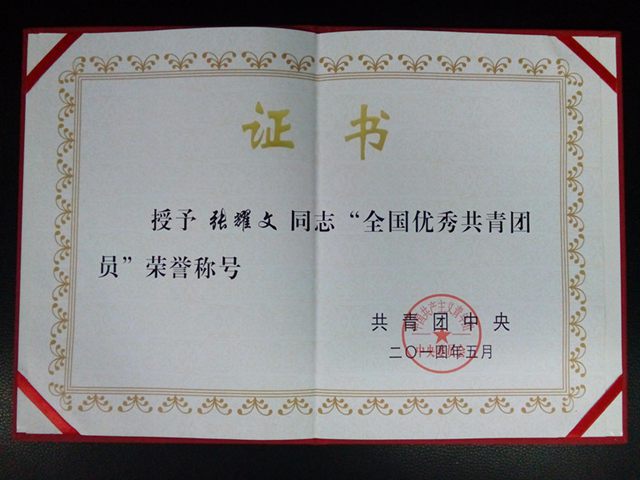 证书
授予 张耀文 同志“全国优秀共青团
员”荣誉称号
共青团中央
二〇一四年五月